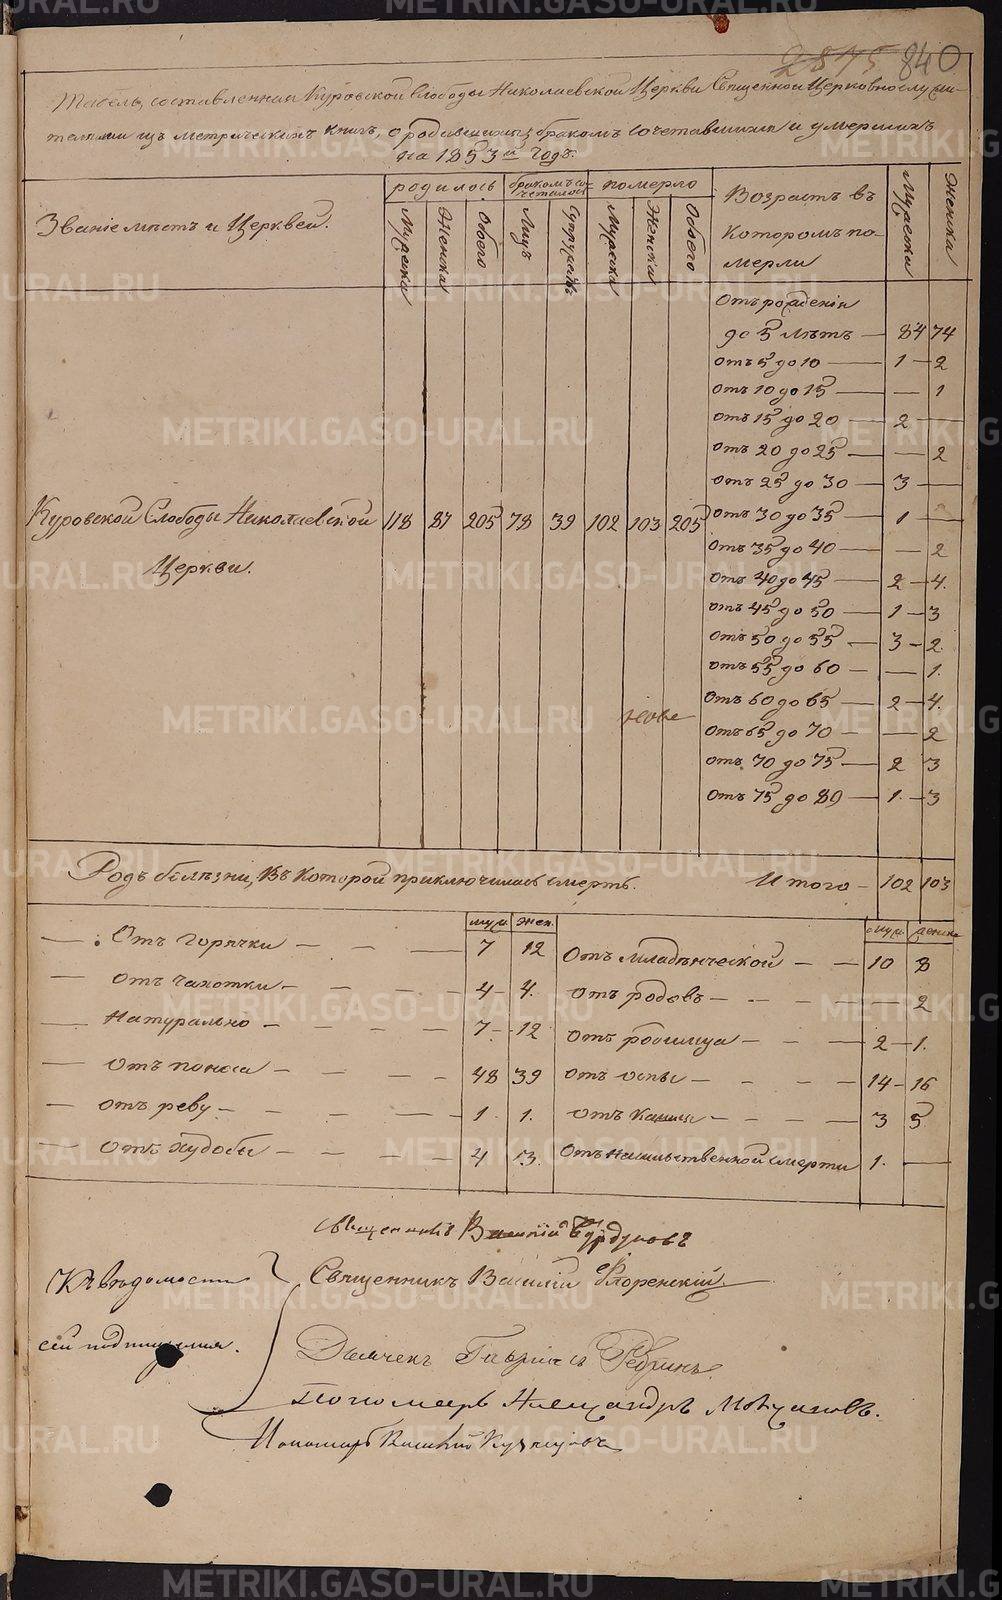 2875 840
Табель, составленная Куровской Слободы Николаевской Церкви Священно и Церковнослужи-
телями изъ метрическихъ книгъ, о родившихся, бракомъ сочетавшихся и умершихъ
на 1853й годъ.
Званiе мѣстъ и Церквей.
родилось
бракомъ со-
четалось
померло
Мужска
Женска
Обоего
Лицъ
Супружъ
Мужска
Женска
Обоего
Возрастъ въ
которомъ по-
мерли
Мужска
Женска
Отъ рожденiя
до 5 лѣтъ — 84 74
отъ 5 до 10 — 1 — 2
отъ 10 до 15 — — 1
отъ 15 до 20 — 2 —
отъ 20 до 25 — — 2
отъ 25 до 30 — 3 —
Куровской Слободы Николаевской
Церкви.
118 87 205 78 39 102 103 205
отъ 30 до 35 — 1 —
отъ 35 до 40 — — 2
отъ 40 до 45 — 2 — 4.
отъ 45 до 50 — 1 — 3
отъ 50 до 55 — 3 — 2
отъ 55 до 60 — — 1.
отъ 60 до 65 — 2 — 4.
отъ 65 до 70 — — 2
отъ 70 до 75 — 2 3
отъ 75 до 80 — 1. — 3
Родъ болѣзни, въ которой приключилась смерть.
Итого — 102 103
муж. жен.
муж. женска
— Отъ горячки — — — 7 12
— отъ чахотки — — — 4 4.
— Натурально — — — 7 — 12
— отъ поноса — — — 48 39
— отъ реву — — — 1. 1.
— отъ худобы — — — 4 13.
Отъ младѣнческой — — 10 8
отъ родовъ — — — 2
отъ родимца — — — 2 — 1.
отъ оспы — — — 14 — 16
отъ кашля — — — 3 5
Отъ насильственной смерти 1. —
Священникъ Василiй
Къ вѣдомости
сей подписуемся.
Священникъ Василiй Флоренскiй
Дьячекъ Гаврiилъ
Пономарь Александръ
Пономарь Василiй Кузнецовъ
METRIKI.GASO-URAL.RU